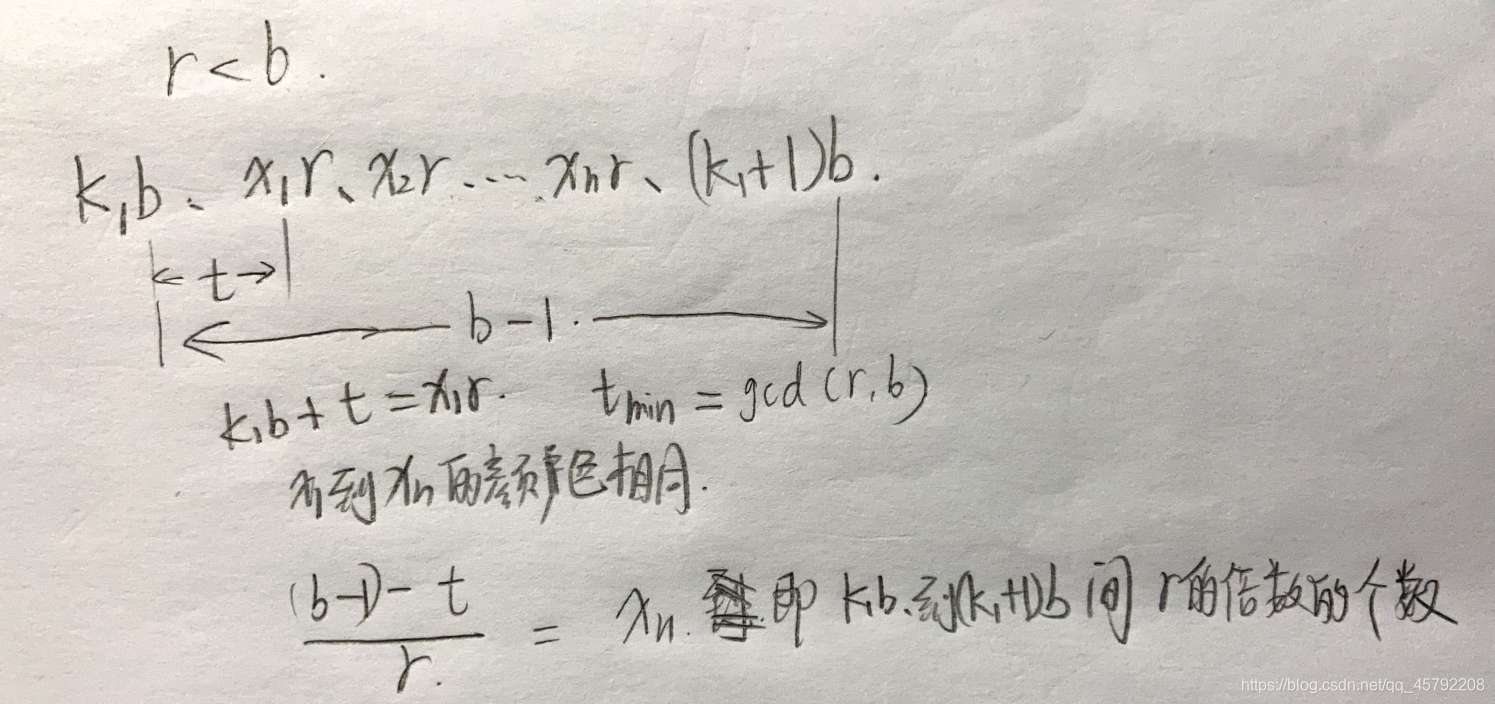 r<b.
k₁b、x₁r、x₂r....xₙr、(k₁+1)b.
t
b-1.
k₁b+t=x₁r. t_min=gcd(r,b)
x₁到xₙ的颜色相同.
(b-1)-t
/ r. = xₙ. 即k₁b、到(k₁+1)b间r的倍数的个数
https://blog.csdn.net/qq_45792208